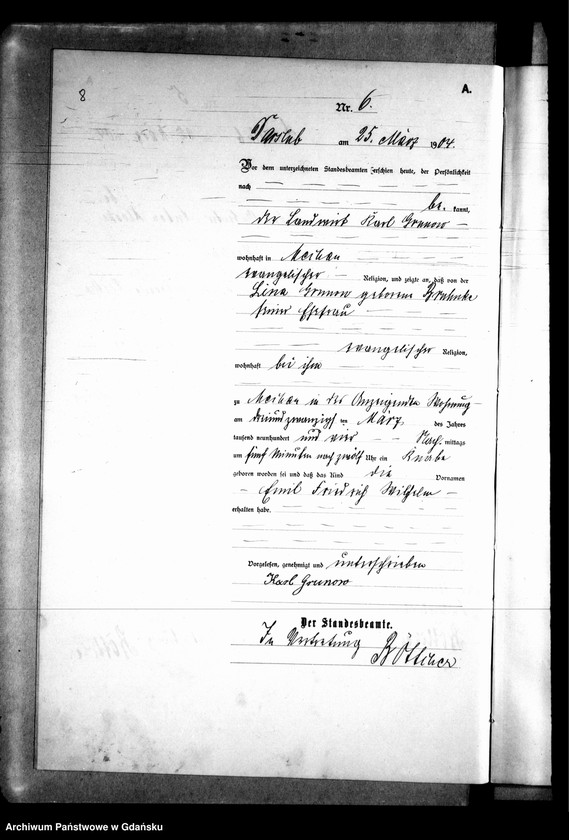 8
A.
Nr. 6.
am 25. März 1904.
Vor dem unterzeichneten Standesbeamten erschien heute, der Persönlichkeit
nach
be kannt,
der Landwirt Karl Grunow
wohnhaft in
evangelischer Religion, und zeigte an, daß von der
Grunow geborene
seiner Ehefrau
evangelischer Religion,
wohnhaft bei ihm
zu in der Anzeigenden Wohnung
am dreiundzwanzigsten März des Jahres
tausend neunhundert und vier Nach mittags
um fünf Minuten nach zwölf Uhr ein Knabe
geboren worden sei und daß das Kind die Vornamen
Emil Friedrich Wilhelm
erhalten habe.
Vorgelesen, genehmigt und unterschrieben
Karl Grunow
Der Standesbeamte.
In Vertretung
Böttcher
Archiwum Państwowe w Gdańsku